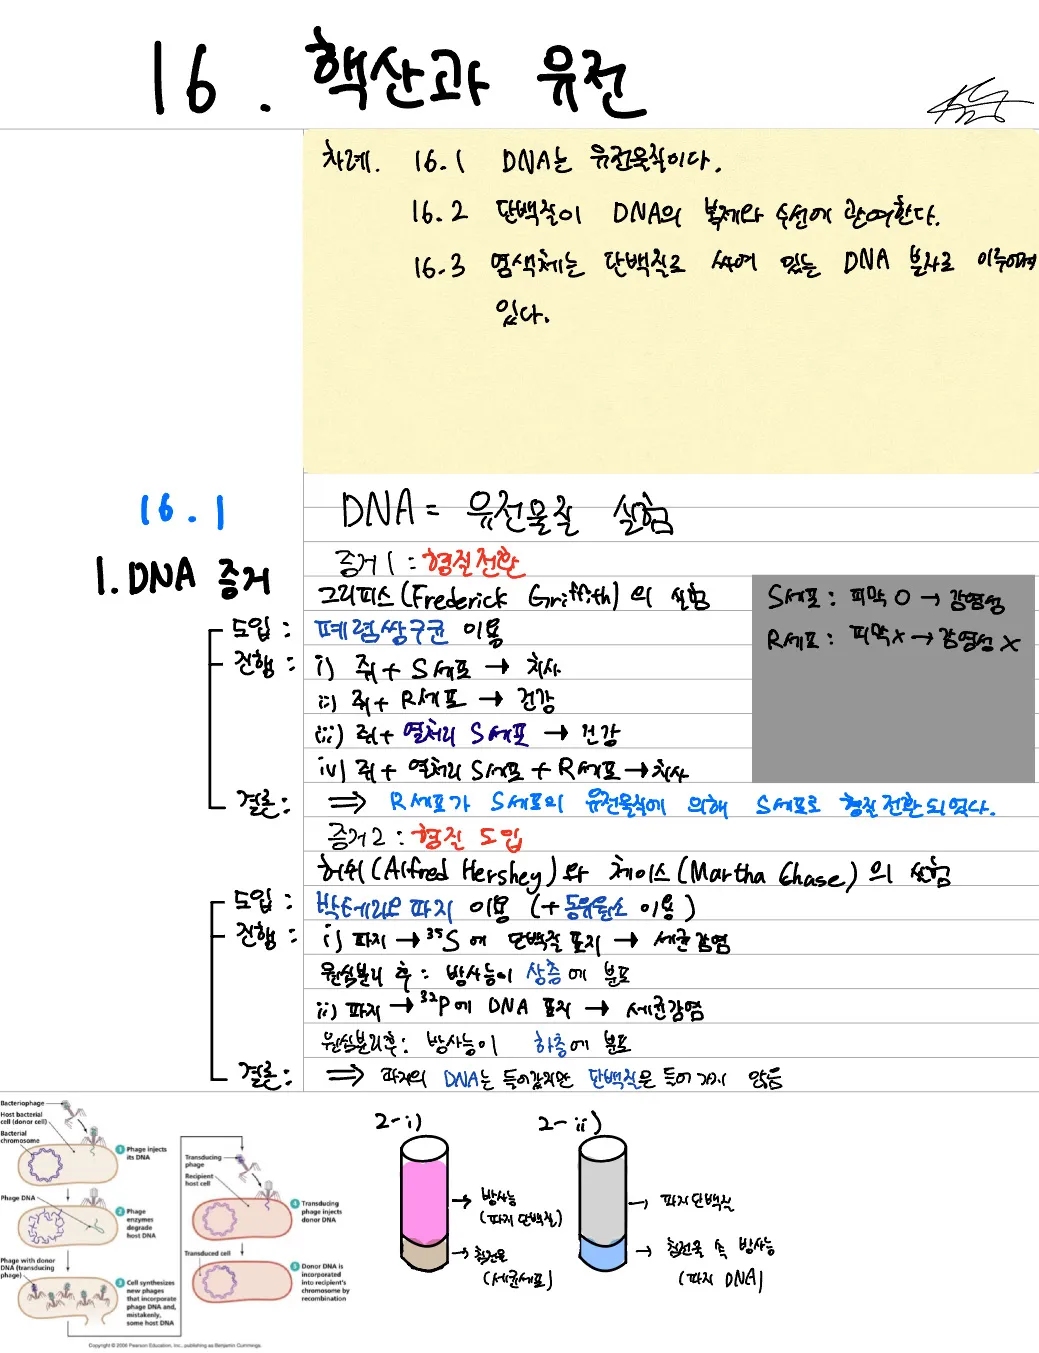 16. 핵산과 유전
차례. 16.1 DNA는 유전물질이다.
16.2 단백질이 DNA의 복제와 수선에 관여한다.
16.3 염색체는 단백질로 싸여 있는 DNA 분자로 이루어져
있다.
16.1
DNA = 유전물질 실험
1. DNA 증거
증거1 : 형질전환
그리피스(Frederick Griffith)의 실험
S세포 : 피막 O → 감염성
R세포 : 피막 X → 감염성 X
도입 : 폐렴쌍구균 이용
진행 : i) 쥐 + S세포 → 치사
ii) 쥐 + R세포 → 건강
iii) 쥐 + 열처리 S세포 → 건강
iv) 쥐 + 열처리 S세포 + R세포 → 치사
결론 : ⇒ R세포가 S세포의 유전물질에 의해 S세포로 형질전환되었다.
증거2 : 형질 도입
허쉬(Alfred Hershey)와 체이스(Martha Chase)의 실험
도입 : 박테리오파지 이용 (+동위원소 이용)
진행 : i) 파지 → ³⁵S에 단백질 표지 → 세균감염
원심분리 후 : 방사능이 상층에 분포
ii) 파지 → ³²P에 DNA 표지 → 세균감염
원심분리후 : 방사능이 하층에 분포
결론 : ⇒ 파지의 DNA는 들어갔지만 단백질은 들어가지 않음
Bacteriophage
Host bacterial
cell (donor cell)
Bacterial
chromosome
1 Phage injects
its DNA
Phage DNA
2 Phage
enzymes
degrade
host DNA
Phage with donor
DNA (transducing
phage)
3 Cell synthesizes
new phages
that incorporate
phage DNA and,
mistakenly,
some host DNA
Transducing
phage
Recipient
host cell
4 Transducing
phage injects
donor DNA
Transduced cell
5 Donor DNA is
incorporated
into recipient's
chromosome by
recombination
Copyright © 2006 Pearson Education, Inc., publishing as Benjamin Cummings.
2-i)
→ 방사능
(파지 단백질)
→ 침전물
(세균세포)
2-ii)
→ 파지단백질
→ 침전물 속 방사능
(파지 DNA)